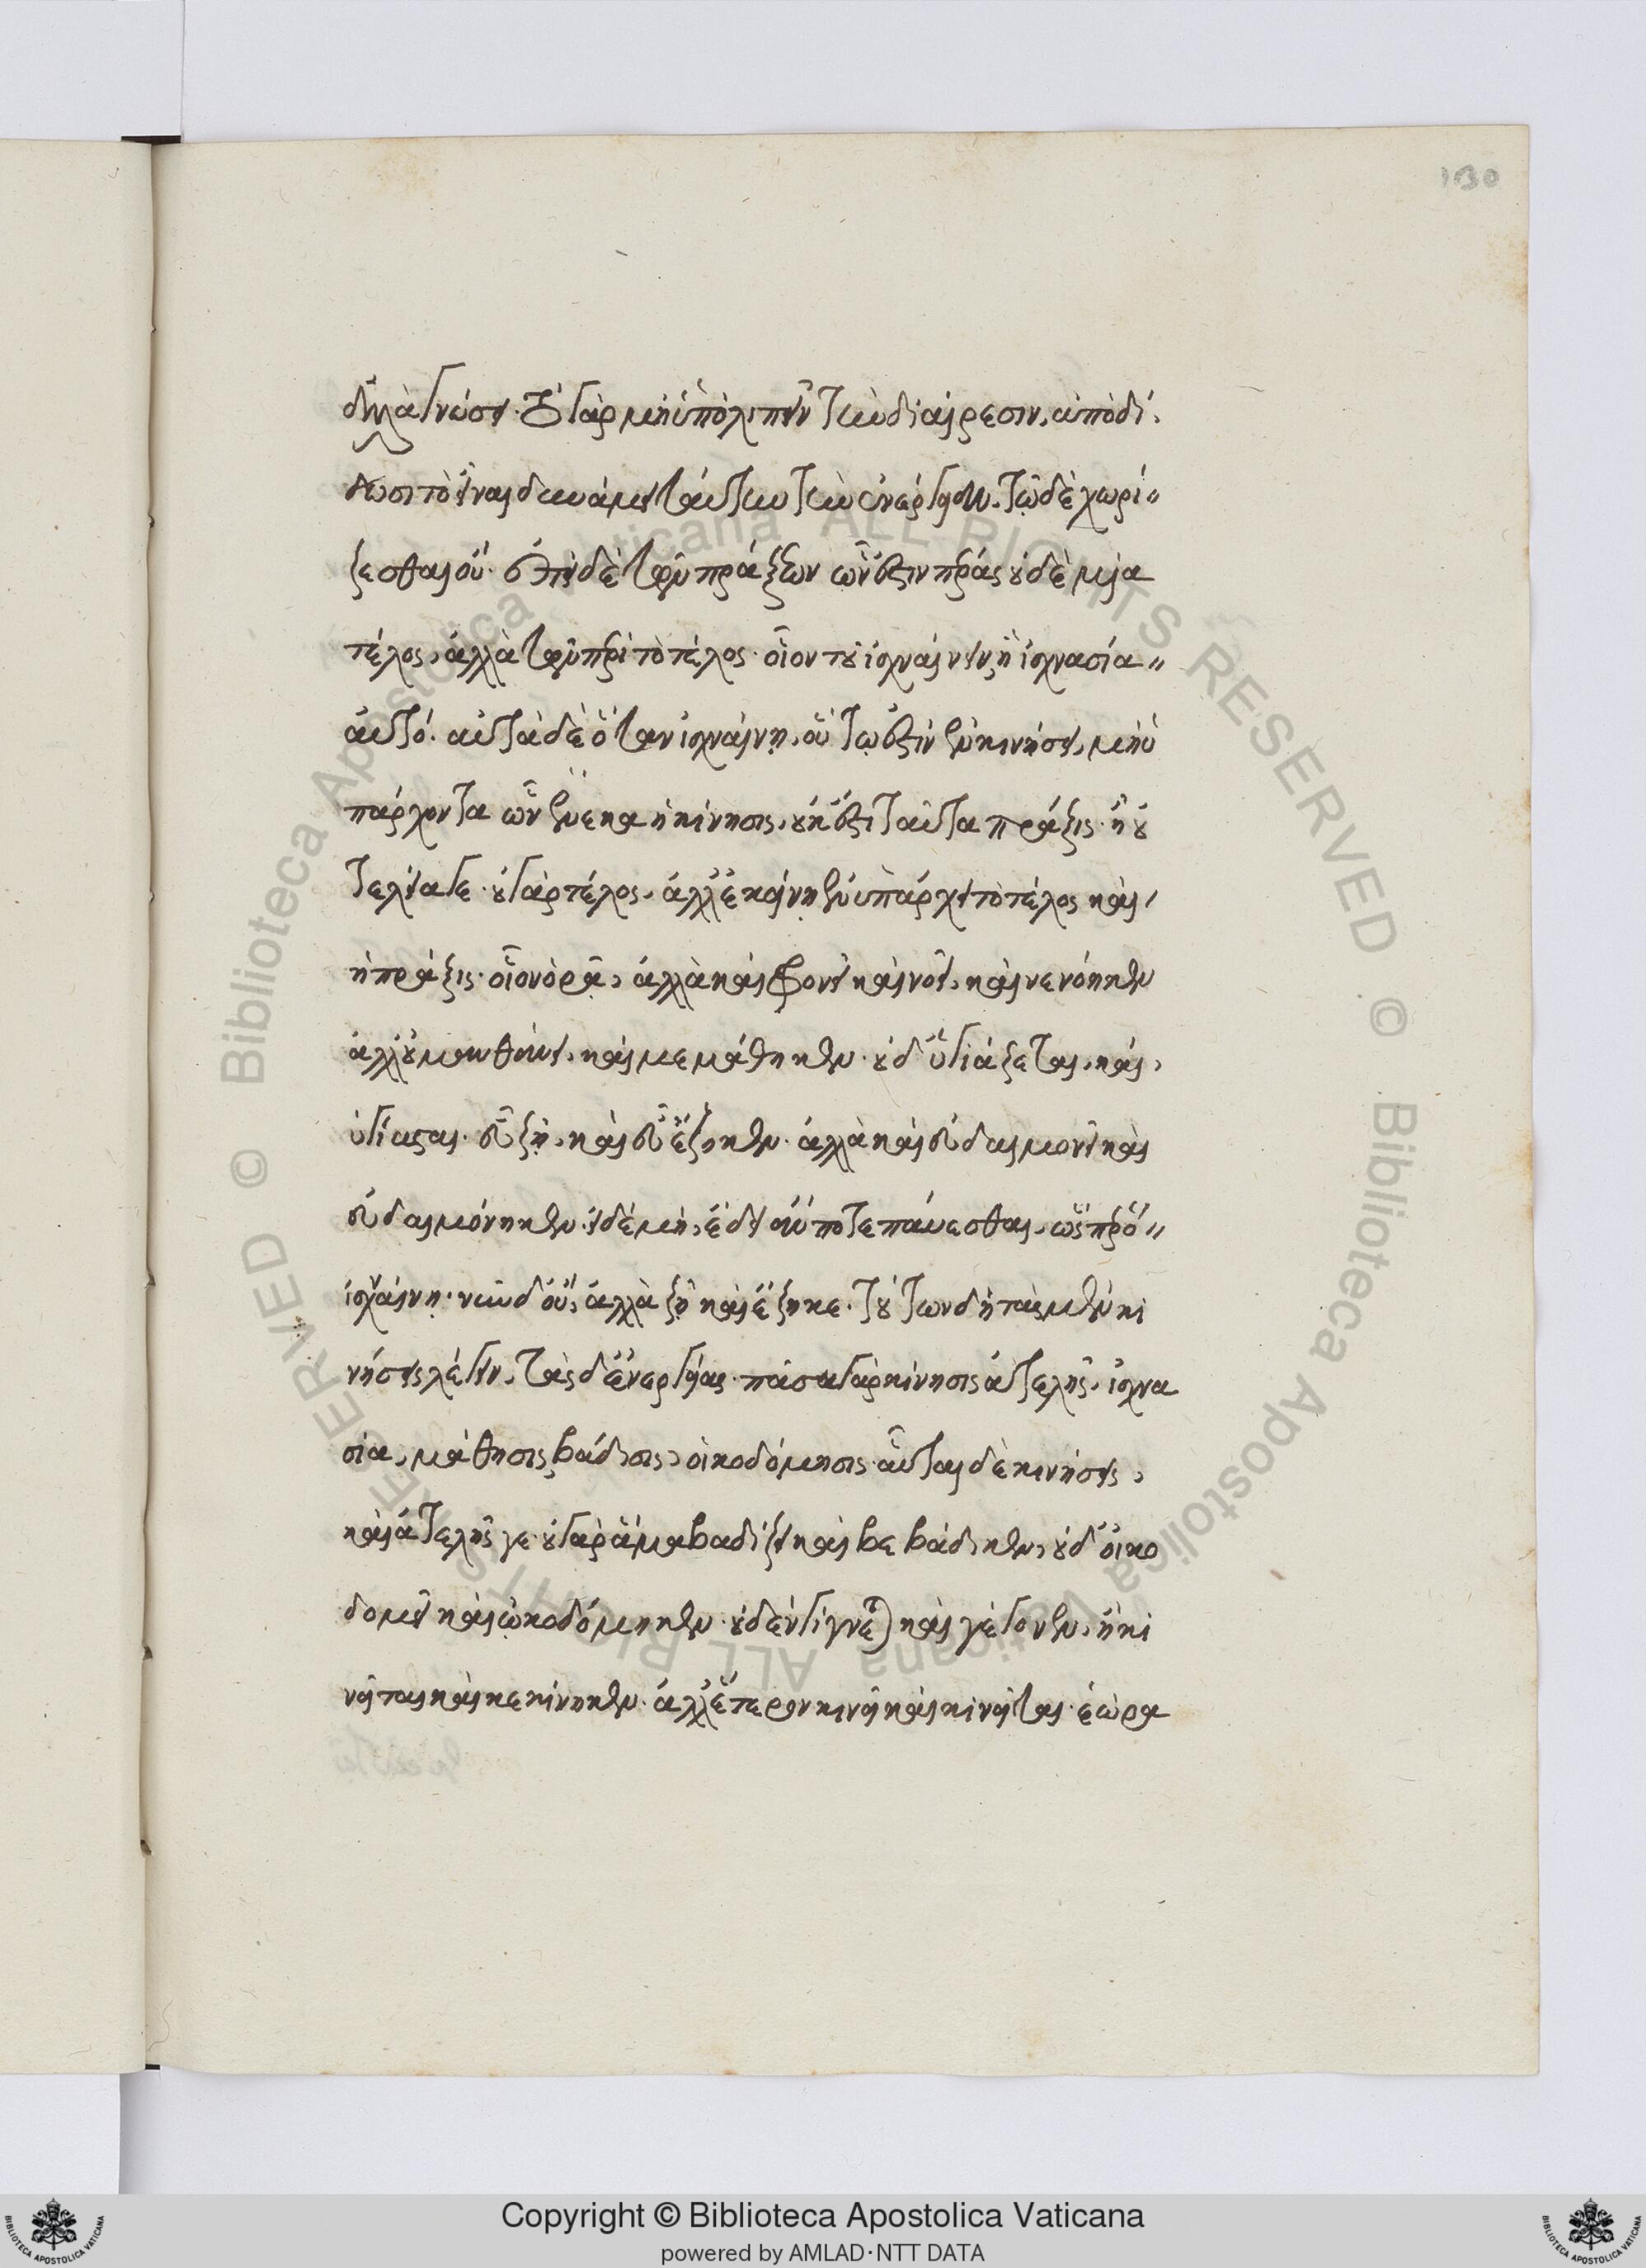 130
ἀλλὰ γνώσει. τὸ γὰρ μὴ ὑπολιπεῖν τὴν διαίρεσιν, ἀποδί
δωσι τὸ εἶναι δυνάμει ταύτην τὴν ἐνέργειαν. τῷ δὲ χωρί
ζεσθαι οὔ. ἐπεὶ δὲ τῶν πράξεων ὧν ἔστιν πέρας οὐδὲ μία
τέλος, ἀλλὰ τῶν περὶ τὸ τέλος. οἷον τοῦ ἰσχναίνειν ἡ ἰσχνασία
αὐτό. αὐτὰ δὲ ὅταν ἰσχναίνῃ, οὕτως ἐστὶν ἐν κινήσει, μὴ ὑ
πάρχοντα ὧν ἕνεκα ἡ κίνησις, οὐκ ἔστι ταῦτα πρᾶξις. ἢ οὐ
τελεία γε. οὐ γὰρ τέλος. ἀλλ' ἐκείνῃ ἐνυπάρχει τὸ τέλος καὶ
ἡ πρᾶξις. οἷον ὁρᾷ, ἀλλὰ καὶ φρονεῖ καὶ νοεῖ, καὶ νενόηκεν
ἀλλ' οὐ μανθάνει, καὶ μεμάθηκεν. οὐδ' ὑγιάζεται, καὶ
ὑγίασται. εὖ ζῇ, καὶ εὖ ἔζηκεν. ἀλλὰ καὶ εὐδαιμονεῖ καὶ
εὐδαιμόνηκεν. εἰ δὲ μή, ἔδει ἄν ποτε παύεσθαι, ὥσπερ ὅ
ἰσχναίνῃ. νῦν δ' οὔ, ἀλλὰ ζῇ καὶ ἔζηκε. τούτων δὴ τὰς μὲν κι
νήσεις λέγειν, τὰς δ' ἐνεργείας. πᾶσα γὰρ κίνησις ἀτελής, ἰσχνα
σία, μάθησις, βάδισις, οἰκοδόμησις. αὗται δὲ κινήσεις,
καὶ ἀτελεῖς γε. οὐ γὰρ ἅμα βαδίζει καὶ βεβάδικεν, οὐδ' οἰκο
δομεῖ καὶ ᾠκοδόμηκεν. οὐδὲν γίγνεται καὶ γέγονεν, ἢ κι
νεῖται καὶ κεκίνηκεν. ἀλλ' ἕτερον κινεῖ καὶ κινεῖται. ἑώρα
Copyright © Biblioteca Apostolica Vaticana
powered by AMLAD·NTT DATA